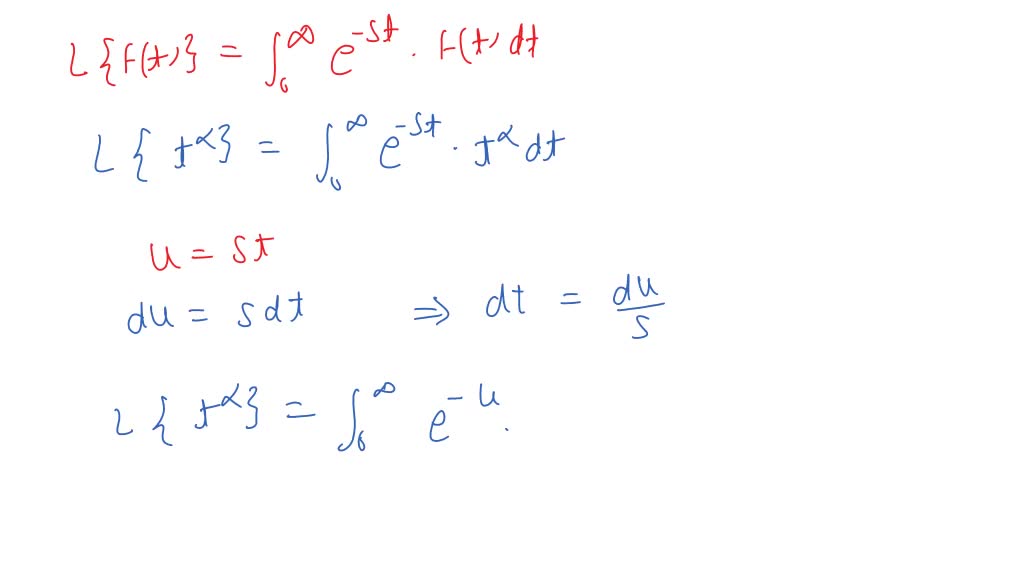 L{F(t)} = ∫₀^∞ e^{-st} · F(t) dt
L{t^α} = ∫₀^∞ e^{-st} · t^α dt
u = st
du = s dt ⇒ dt = du/s
L{t^α} = ∫₀^∞ e^{-u} .